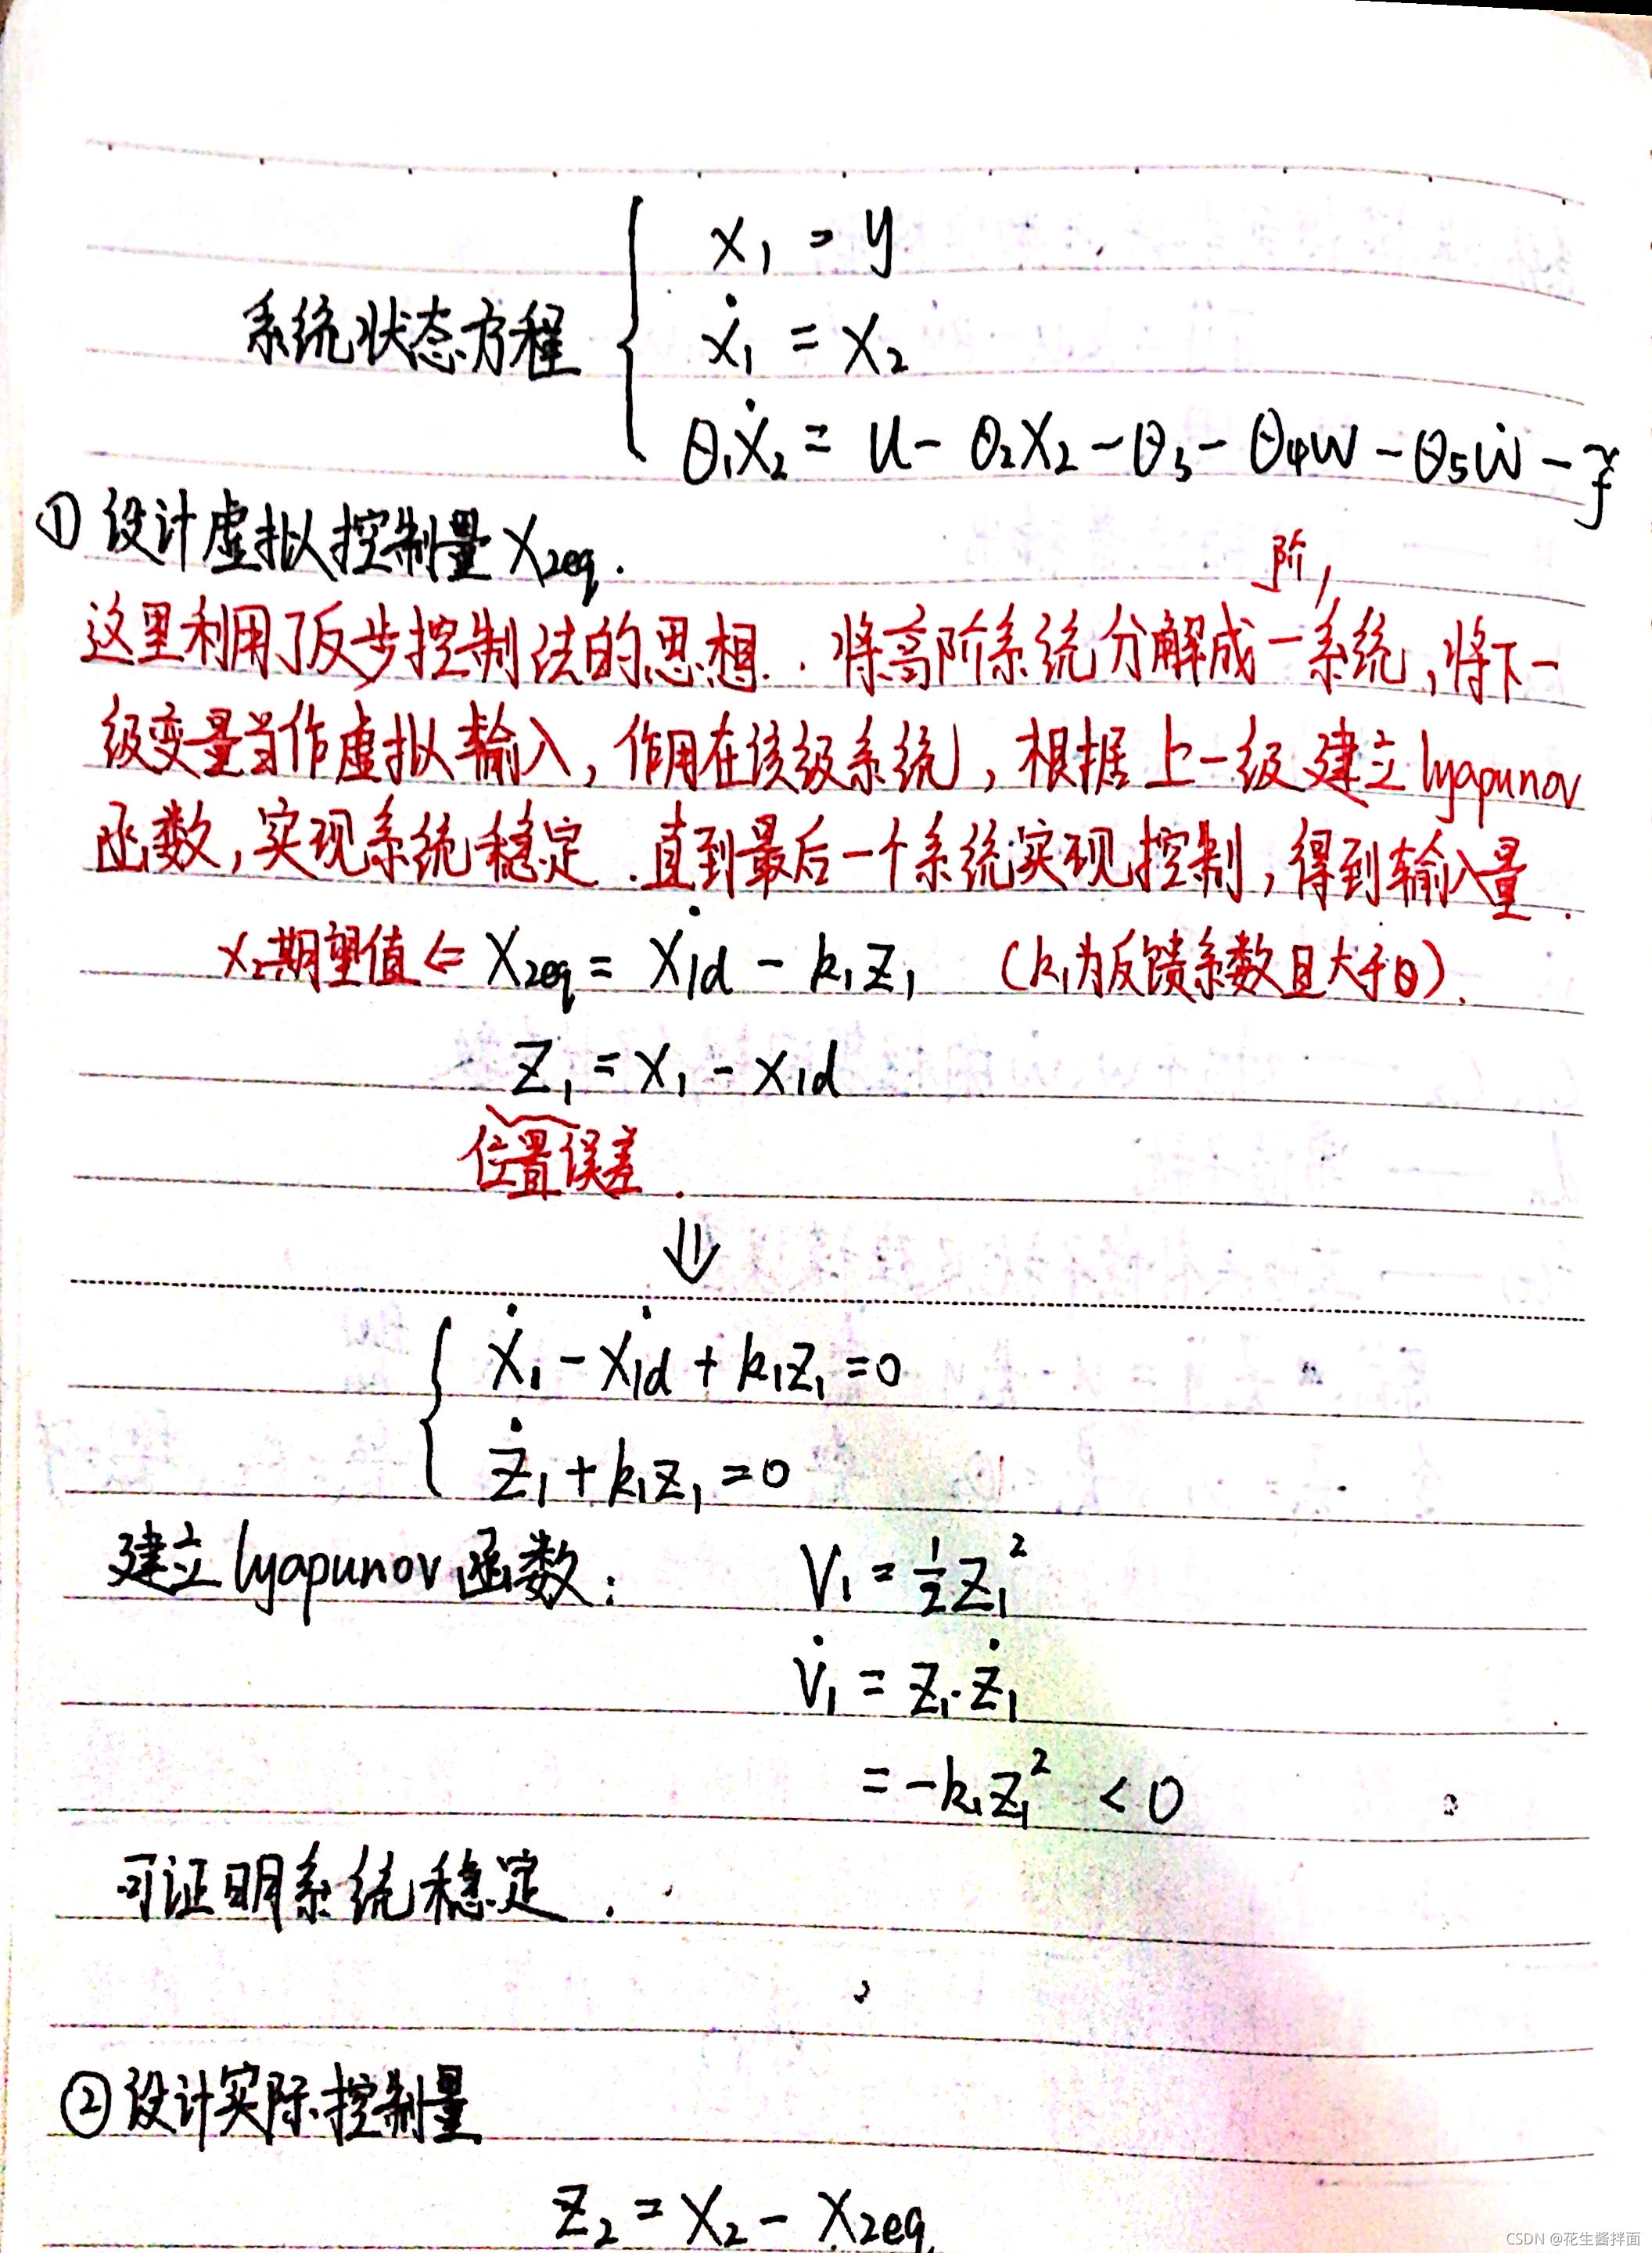 x₁ = y
系统状态方程 ẋ₁ = x₂
θ₁ẋ₂ = u - θ₂x₂ - θ₃ - θ₄w - θ₅ẇ - f̃
① 设计虚拟控制量 x₂eq.
阶,
这里利用了反步控制法的思想. 将高阶系统分解成一系统,将下一
级变量当作虚拟输入, 作用在该级系统, 根据上一级建立lyapunov
函数, 实现系统稳定. 直到最后一个系统实现控制, 得到输入量.
x₂期望值 ⇐ x₂eq = ẋ₁d - k₁z₁ (k₁为反馈系数且大于0).
z₁ = x₁ - x₁d
位置误差.
⇓
ẋ₁ - ẋ₁d + k₁z₁ = 0
ż₁ + k₁z₁ = 0
建立lyapunov函数: V₁ = ½z₁²
V̇₁ = z₁·ż₁
= -k₁z₁² < 0
可证明系统稳定.
② 设计实际控制量
z₂ = x₂ - x₂eq
CSDN @花生酱拌面